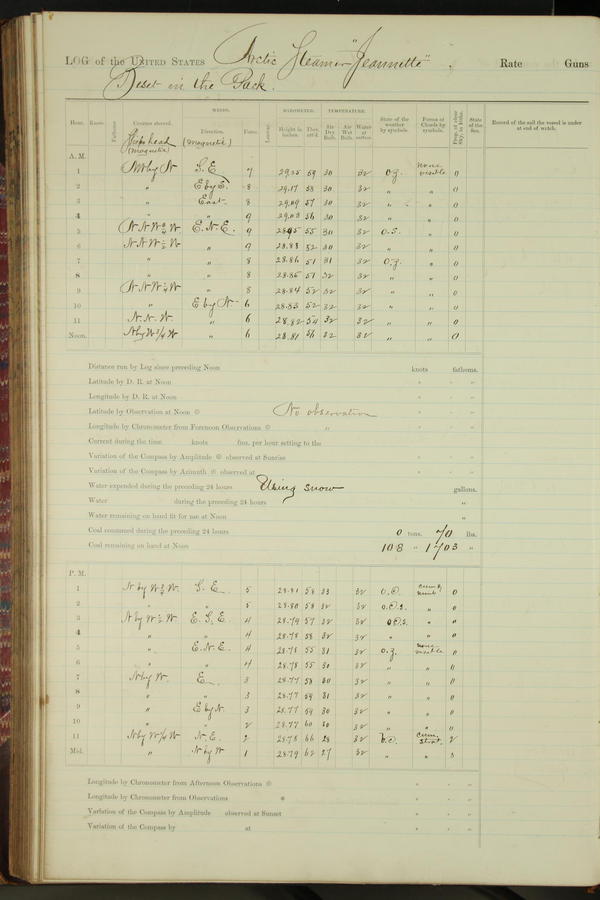 LOG of the UNITED STATES Arctic Steamer "Jeannette", Rate Guns
Beset in the Pack.
WINDS. BAROMETER. TEMPERATURE.
Hour. Knots. Courses steered. Direction. Force. Leeway. Height in inches. Ther. att'd. Air Dry Bulb. Air Wet Bulb. Water at surface. State of the weather by symbols. Forms of Clouds by symbols. State of the Sea. Record of the sail the vessel is under at end of watch.
Ship's head (magnetic) (magnetic)
A. M.
1 NW by N S. E. 7 29.25 59 30 32 o.z. none visible 0
2 " E by E. 8 29.17 58 30 32 " " 0
3 " East. 8 29.09 57 30 32 " " 0
4 " " 9 29.03 56 30 32 " " 0
5 N N W ¾ W E. N. E. 9 28.95 55 30 32 o.s. " 0
6 N N W ½ W " 9 28.88 52 30 32 " " 0
7 " " 8 28.86 51 31 32 o.z. " 0
8 " " 8 28.85 51 32 32 " " 0
9 N N W ¼ W " 8 28.84 52 32 32 " " 0
10 " E by N 6 28.83 52 32 32 " " 0
11 N. N. W. " 6 28.82 54 32 32 " " 0
Noon. N by W ¾ W " 6 28.81 56 32 32 " " 0
Distance run by Log since preceding Noon knots fathoms.
Latitude by D. R. at Noon
Longitude by D. R. at Noon
Latitude by Observation at Noon No observation
Longitude by Chronometer from Forenoon Observations "
Current during the time knots fms. per hour setting to the
Variation of the Compass by Amplitude observed at Sunrise
Variation of the Compass by Azimuth observed at
Water expended during the preceding 24 hours Using snow gallons.
Water during the preceding 24 hours "
Water remaining on hand fit for use at Noon "
Coal consumed during the preceding 24 hours 0 tons. 70 lbs.
Coal remaining on hand at Noon 108 " 1703 "
P. M.
1 N by W ¾ W. S. E. 5 28.81 58 33 32 o.c. cum. nimb. 0
2 " " 5 28.80 58 32 32 o.c.s. " 0
3 N by W ½ W. E. S. E. 4 28.79 57 32 32 o.c.s. " 0
4 " " 4 28.78 58 32 32 " " 0
5 " E. N. E. 4 28.78 55 31 32 o.z. none visible 0
6 " " 4 28.78 55 30 32 " " 0
7 N by W. E 3 28.77 58 30 32 " " 0
8 " " 3 28.77 59 31 32 " " 0
9 " E by N. 3 28.77 59 30 32 " " 0
10 " " 2 28.77 60 30 32 " " 0
11 N by W ¼ W N. E. 2 28.78 66 28 32 b.c. Cum. Strat. 2
Mid. " N by W 1 28.79 62 27 32 " " 3
Longitude by Chronometer from Afternoon Observations
Longitude by Chronometer from Observations
Variation of the Compass by Amplitude observed at Sunset
Variation of the Compass by at